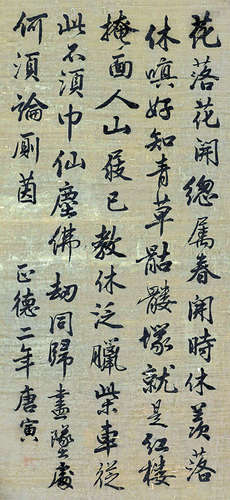 花落花開總屬春開時休羨落
休嗔好知青草骷髏塚就是紅樓
掩面人山屐已教休泛臘柴車從
此不須巾仙塵佛劫同歸盡墜處
何須論厠茵 正德二年唐寅